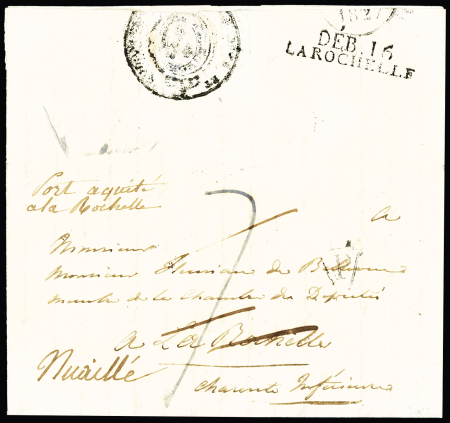 1827
DÉB. 16
LA ROCHELLE
Port aquité
a la Rochelle
a
Monsieur
Monsieur Fleuriau de
membre de la Chambre des Députés
a La Rochelle
Nuaillé
Charente Inférieure
7